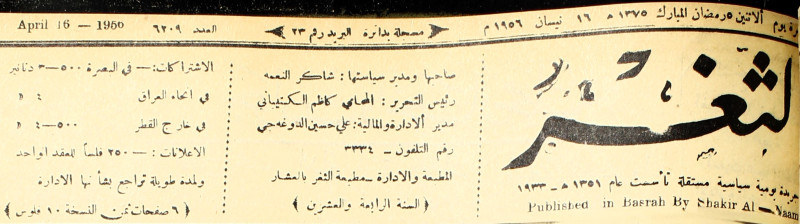 يوم الاثنين ٥ رمضان المبارك ١٣٧٥ هـ ١٦ نيسان ١٩٥٦ م
﴿ مسجلة بدائرة البريد رقم ٢٣ ﴾
العدد ٦٢٠٩
April 16 — 1956
الثغر
جريدة يومية سياسية مستقلة تأسست عام ١٣٥١ هـ - ١٩٣٣
Published in Basrah By Shakir Al — Naam
صاحبها ومدير سياستها : شاكر النعمه
رئيس التحرير : المحامي كاظم الكتيباني
مدير الادارة والمالية : علي حسين الدوغه جي
رقم التلفون — ٣٣٣٤
المطبعة والادارة — مطبعة الثغر بالعشار
﴿ السنة الرابعة والعشرين ﴾
الاشتراكات :— في البصرة ٥٠٠—٣ دنانير
في انحاء العراق ٤ »
في خارج القطر ٥٠٠—٤ »
الاعلانات :— ٢٥٠ فلساً للعقد الواحد
ولمدة طويلة تراجع بشأنها الادارة
﴿ ٦ صفحات ثمن النسخة ١٠ فلوس ﴾